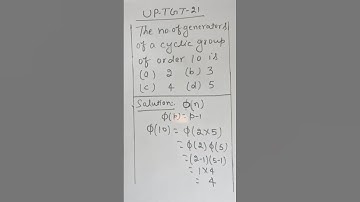 UP-TGT-21
The no. of generators
of a cyclic group
of order 10 is
(a) 2 (b) 3
(c) 4 (d) 5
Solution: ϕ(n)
ϕ(p) = p-1
ϕ(10) = ϕ(2×5)
= ϕ(2) ϕ(5)
= (2-1)(5-1)
= 1×4
= 4